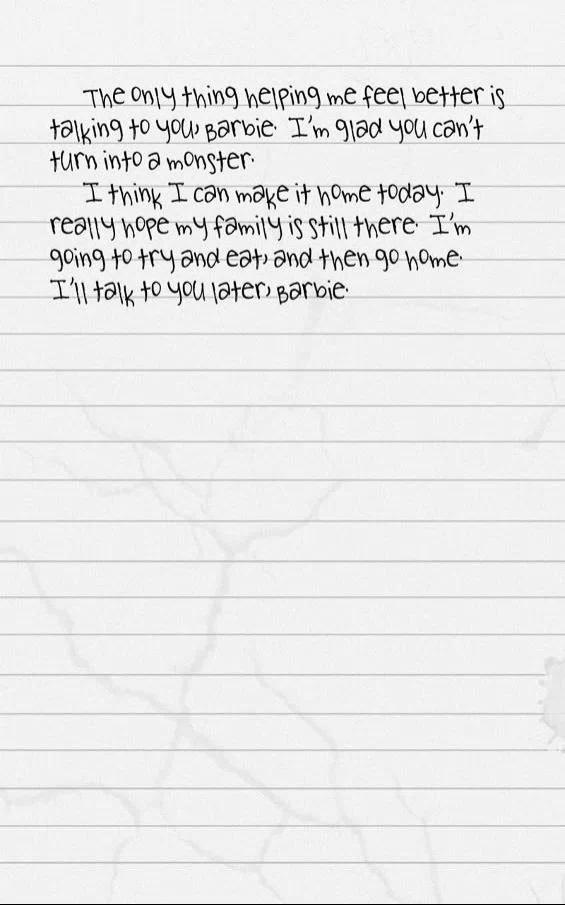 The only thing helping me feel better is
talking to you, Barbie. I'm glad you can't
turn into a monster.
I think I can make it home today. I
really hope my family is still there. I'm
going to try and eat, and then go home.
I'll talk to you later, Barbie.